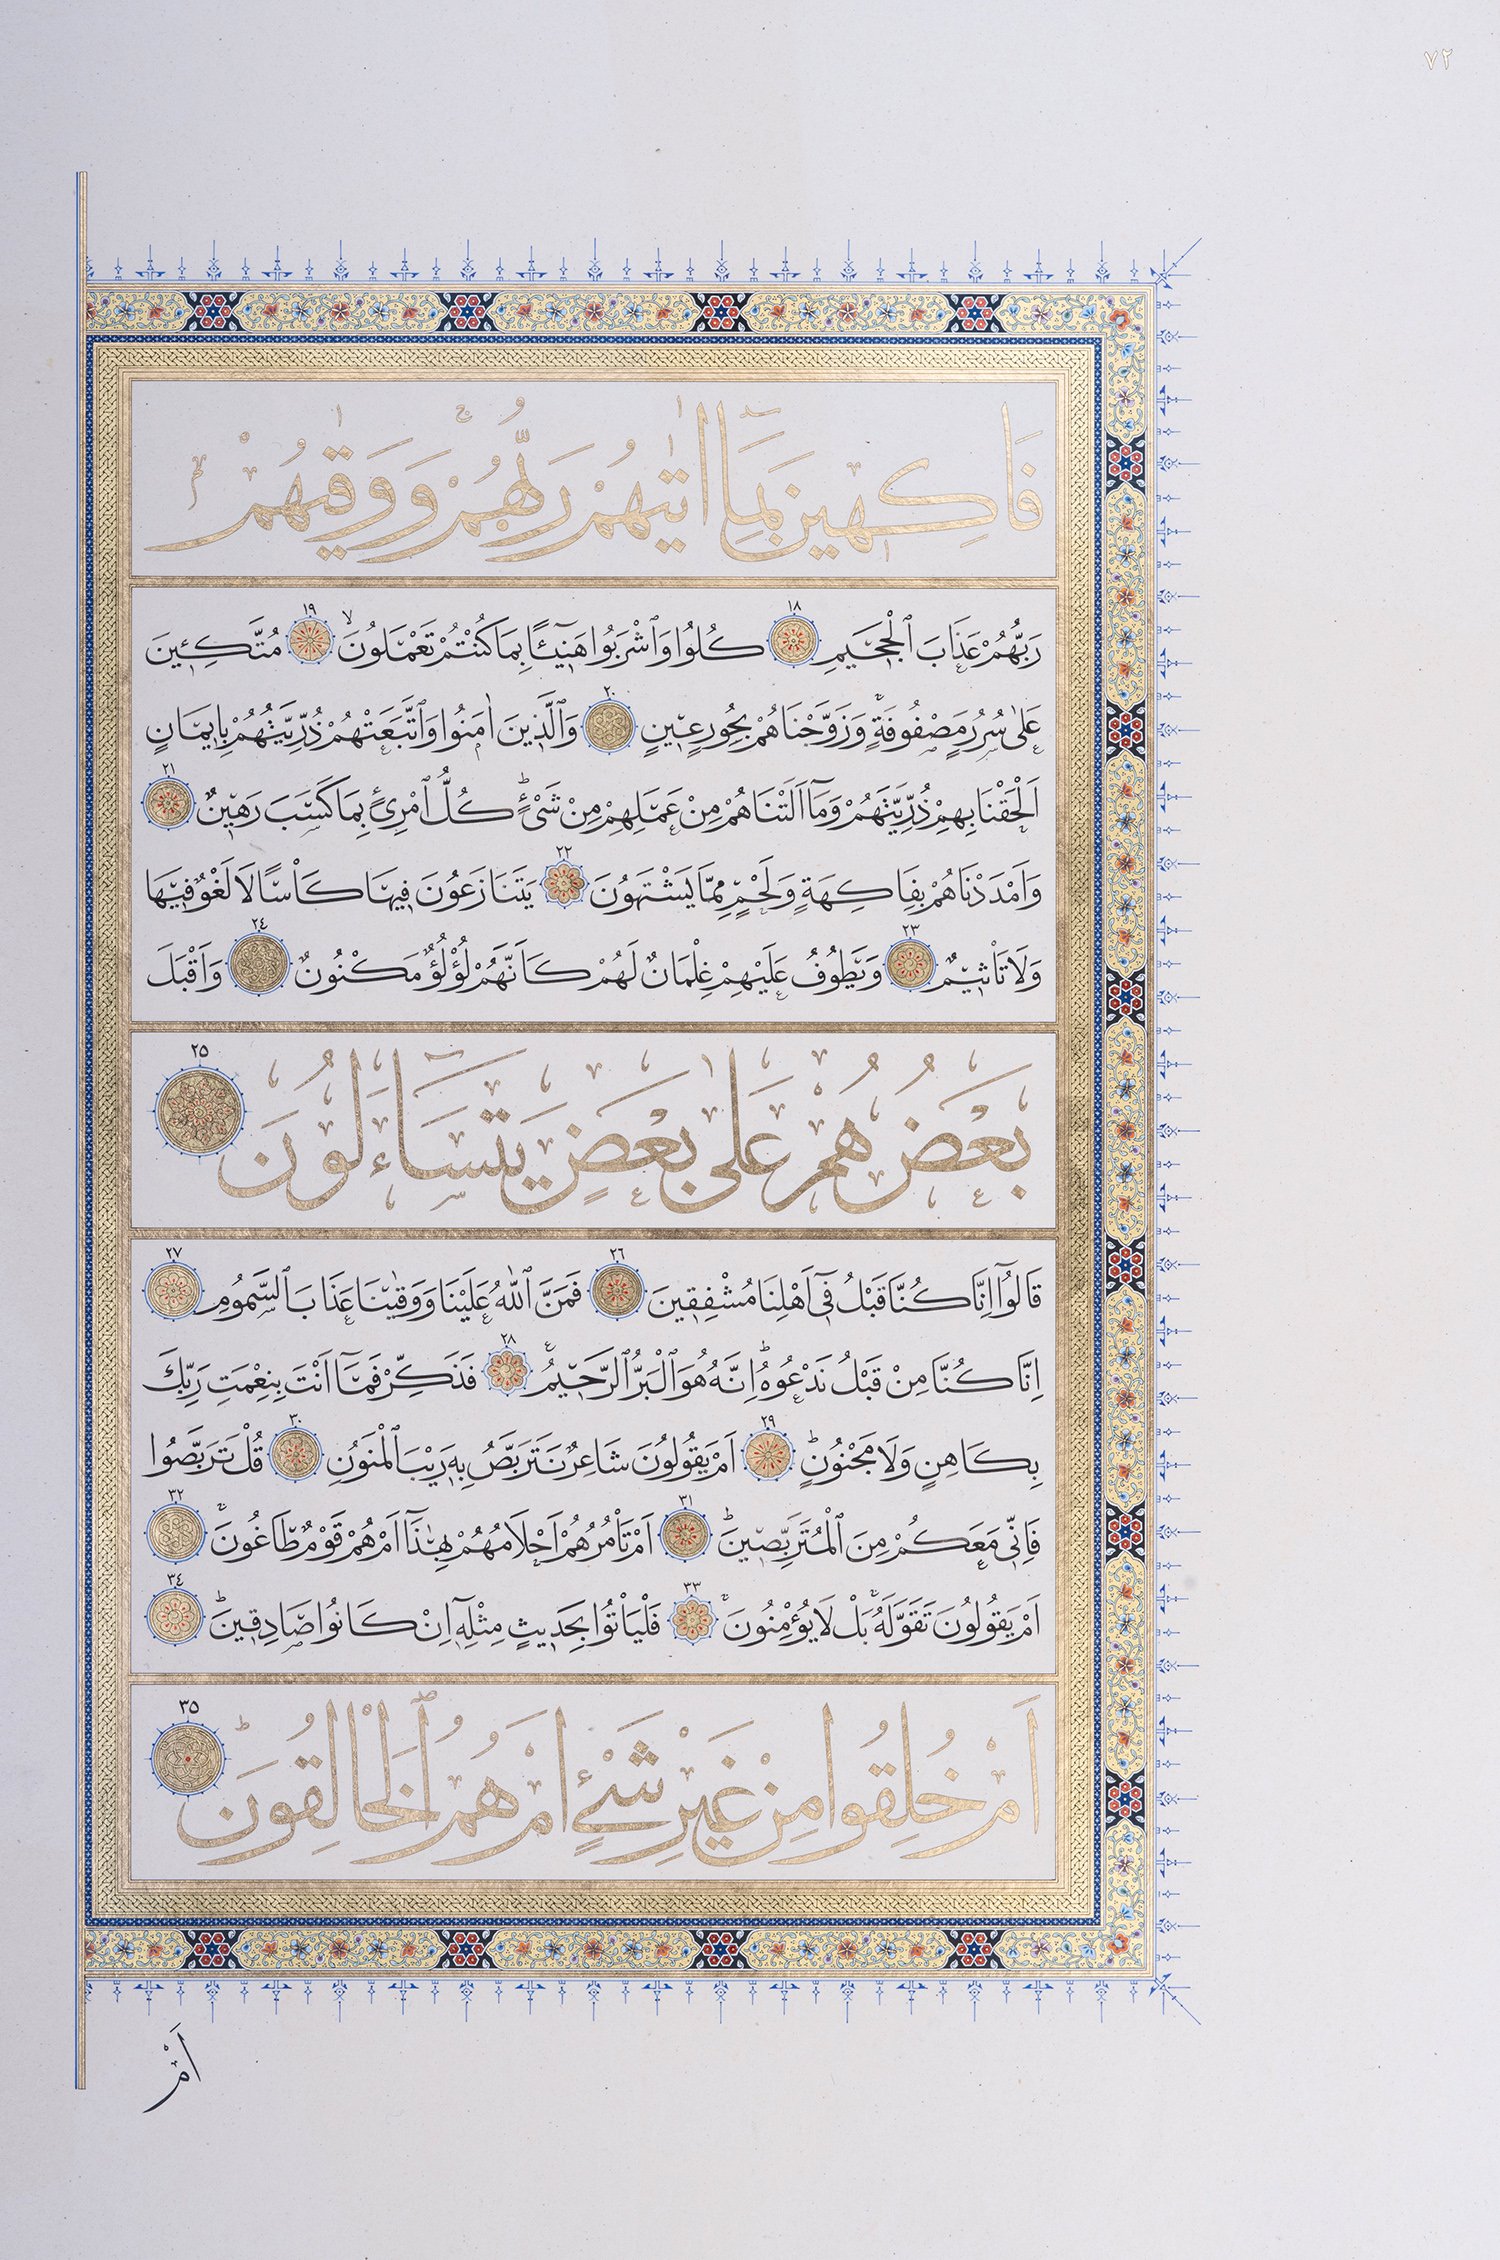 ٧٢
فَاكِهِينَ بِمَٓا اٰتٰيهُمْ رَبُّهُمْۚ وَوَقٰيهُمْ
رَبُّهُمْ عَذَابَ الْجَحِيمِ ١٨ كُلُوا وَاشْرَبُوا هَنِٓيـًٔا بِمَا كُنْتُمْ تَعْمَلُونَۙ ١٩ مُتَّكِـِٔينَ
عَلٰى سُرُرٍ مَصْفُوفَةٍۚ وَزَوَّجْنَاهُمْ بِحُورٍ عِينٍ ٢٠ وَالَّذِينَ اٰمَنُوا وَاتَّبَعَتْهُمْ ذُرِّيَّتُهُمْ بِاِيمَانٍ
اَلْحَقْنَا بِهِمْ ذُرِّيَّتَهُمْ وَمَٓا اَلَتْنَاهُمْ مِنْ عَمَلِهِمْ مِنْ شَيْءٍۜ كُلُّ امْرِئٍ بِمَا كَسَبَ رَهِينٌ ٢١
وَاَمْدَدْنَاهُمْ بِفَاكِهَةٍ وَلَحْمٍ مِمَّا يَشْتَهُونَ ٢٢ يَتَنَازَعُونَ فِيهَا كَأْسًا لَا لَغْوٌ فِيهَا
وَلَا تَأْثِيمٌ ٢٣ وَيَطُوفُ عَلَيْهِمْ غِلْمَانٌ لَهُمْ كَاَنَّهُمْ لُؤْلُؤٌ مَكْنُونٌ ٢٤ وَاَقْبَلَ
بَعْضُهُمْ عَلٰى بَعْضٍ يَتَسَٓاءَلُونَ ٢٥
قَالُٓوا اِنَّا كُنَّا قَبْلُ فِٓي اَهْلِنَا مُشْفِقِينَ ٢٦ فَمَنَّ اللّٰهُ عَلَيْنَا وَوَقٰينَا عَذَابَ السَّمُومِ ٢٧
اِنَّا كُنَّا مِنْ قَبْلُ نَدْعُوهُۜ اِنَّهُ هُوَ الْبَرُّ الرَّحِيمُ۟ ٢٨ فَذَكِّرْ فَمَٓا اَنْتَ بِنِعْمَتِ رَبِّكَ
بِكَاهِنٍ وَلَا مَجْنُونٍۜ ٢٩ اَمْ يَقُولُونَ شَاعِرٌ نَتَرَبَّصُ بِهِ رَيْبَ الْمَنُونِ ٣٠ قُلْ تَرَبَّصُوا
فَاِنِّي مَعَكُمْ مِنَ الْمُتَرَبِّصِينَۜ ٣١ اَمْ تَأْمُرُهُمْ اَحْلَامُهُمْ بِهٰذَٓا اَمْ هُمْ قَوْمٌ طَاغُونَۚ ٣٢
اَمْ يَقُولُونَ تَقَوَّلَهُۚ بَلْ لَا يُؤْمِنُونَۚ ٣٣ فَلْيَأْتُوا بِحَدِيثٍ مِثْلِهِٓ اِنْ كَانُوا صَادِقِينَۜ ٣٤
اَمْ خُلِقُوا مِنْ غَيْرِ شَيْءٍ اَمْ هُمُ الْخَالِقُونَۜ ٣٥
اَمْ